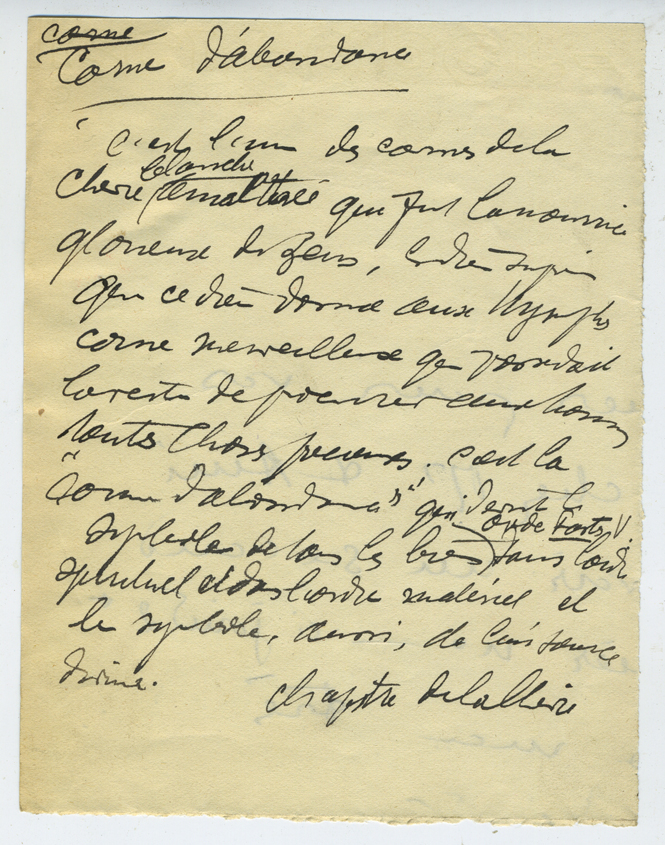 corne
Corne d'abondance
"c'est l'une des cornes de la
blanche
chèvre Amalthée qui fut la nourrice
glorieuse de Zeus, le dieu
que ce dieu donna aux Nymphes
corne merveilleuse qui possédait
la vertu de procurer aux hommes
toutes choses précieuses, c'est la
"Corne d'abondance" qui devint le
symbole de tous les biens dans l'ordre
spirituel et dans l'ordre matériel et
le symbole, aussi, de leur source
divine.
chapitre de la chèvre